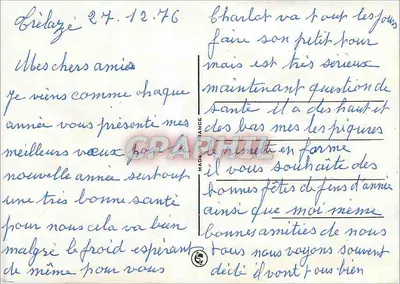 Trélazé 27.12.76
Mes chers amies
Je viens comme chaque
année vous présenté mes
meilleurs vœux pour la
nouvelle année surtout
une très bonne santé
pour nous cela va bien
malgré le froid espérant
de même pour vous
Charlot va tout les jours
faire son petit tour
mais est très sérieux
maintenant question de
santé il a des haut et
des bas mes les piqures
le remette en forme
il vous souhaite des
bonnes fêtes de fins d'année
ainsi que moi même
bonnes amitiés de nous
tous nous voyons souvent
dédé il vont tous bien
MADE IN FRANCE
CPAPHIL